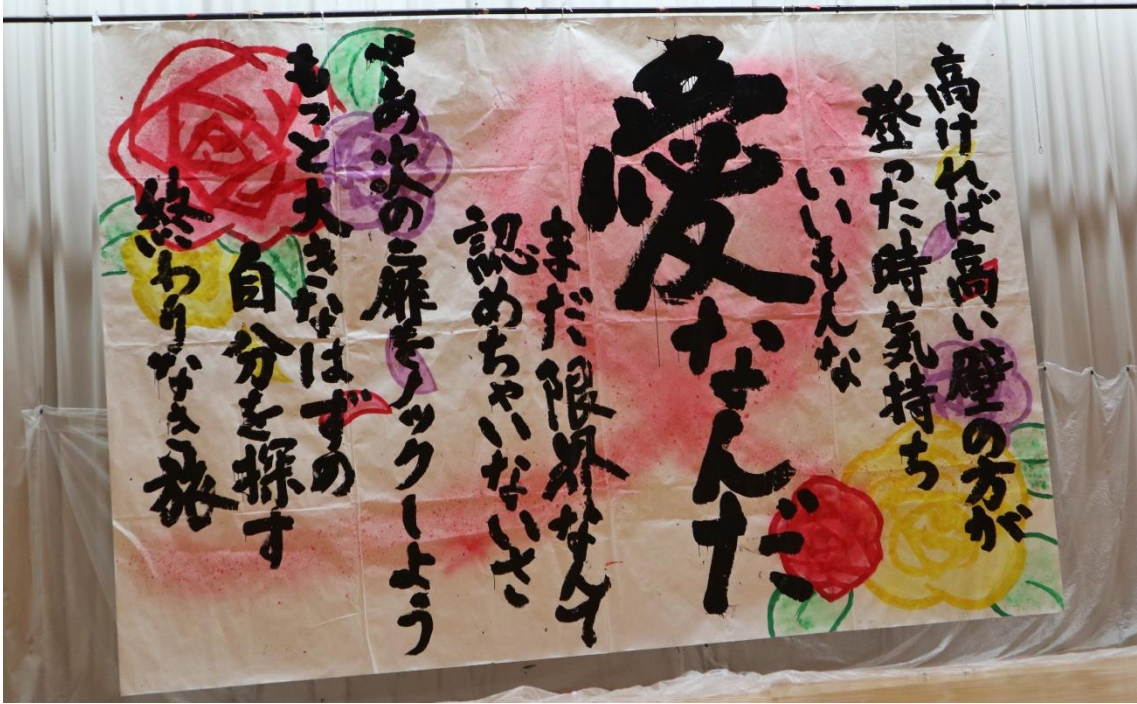 高ければ高い壁の方が
登った時気持ち
いいもんな
愛なんだ
まだ限界なんて
認めちゃいないさ
さあ次の扉をノックしよう
もっと大きなはずの
自分を探す
終わりなき旅